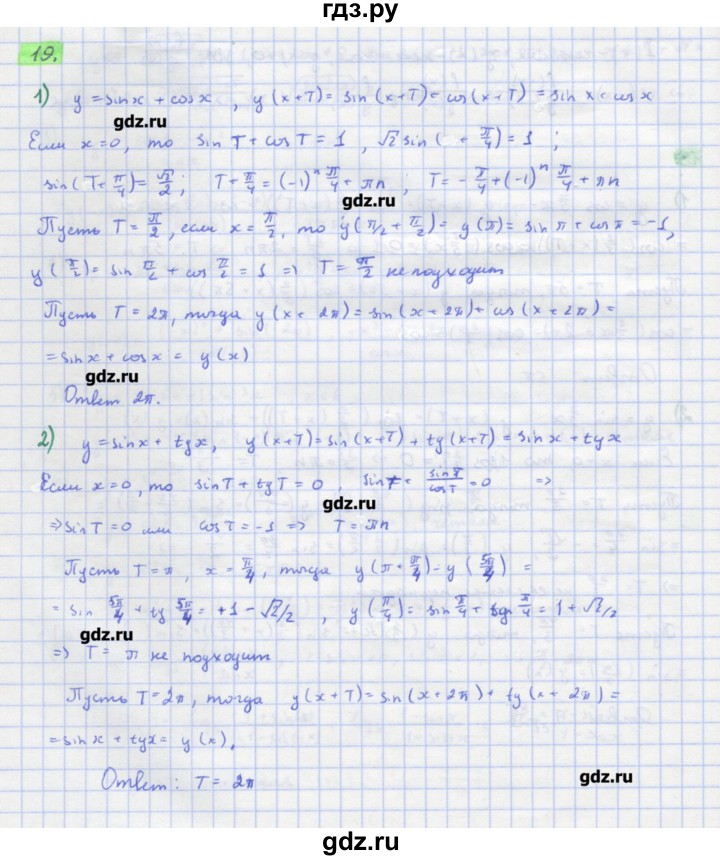 гдз.ру
19.
1) y = sin x + cos x, y (x+T) = sin (x+T) + cos (x+T) = sin x + cos x
gdz.ru
Если x=0, то sin T + cos T = 1, √2 sin( + π/4) = 1;
sin(T+π/4) = √2/2; T + π/4 = (-1)^n π/4 + πn; T = -π/4 + (-1)^n π/4 + πn
gdz.ru
Пусть T = π/2, если x = π/2, то y(π/2 + π/2) = y(π) = sin π + cos π = -1,
y(π/2) = sin π/2 + cos π/2 = 1 => T = π/2 не подходит
gdz.ru
Пусть T = 2π, тогда y(x + 2π) = sin(x+2π) + cos(x+2π) =
= sin x + cos x = y(x)
gdz.ru
Ответ 2π.
2) y = sin x + tg x, y(x+T) = sin(x+T) + tg(x+T) = sin x + tg x
Если x=0, то sin T + tg T = 0, sin T + sin T/cos T = 0 =>
gdz.ru
=> sin T = 0 или cos T = -1 => T = πn
Пусть T = π, x = π/4, тогда y(π + π/4) = y(5π/4) =
= sin 5π/4 + tg 5π/4 = +1 - √2/2, y(π/4) = sin π/4 + tg π/4 = 1 + √2/2
gdz.ru
=> T = π не подходит
Пусть T = 2π, тогда y(x+T) = sin(x+2π) + tg(x+2π) =
gdz.ru
= sin x + tg x = y(x),
Ответ: T = 2π
gdz.ru
gdz.ru